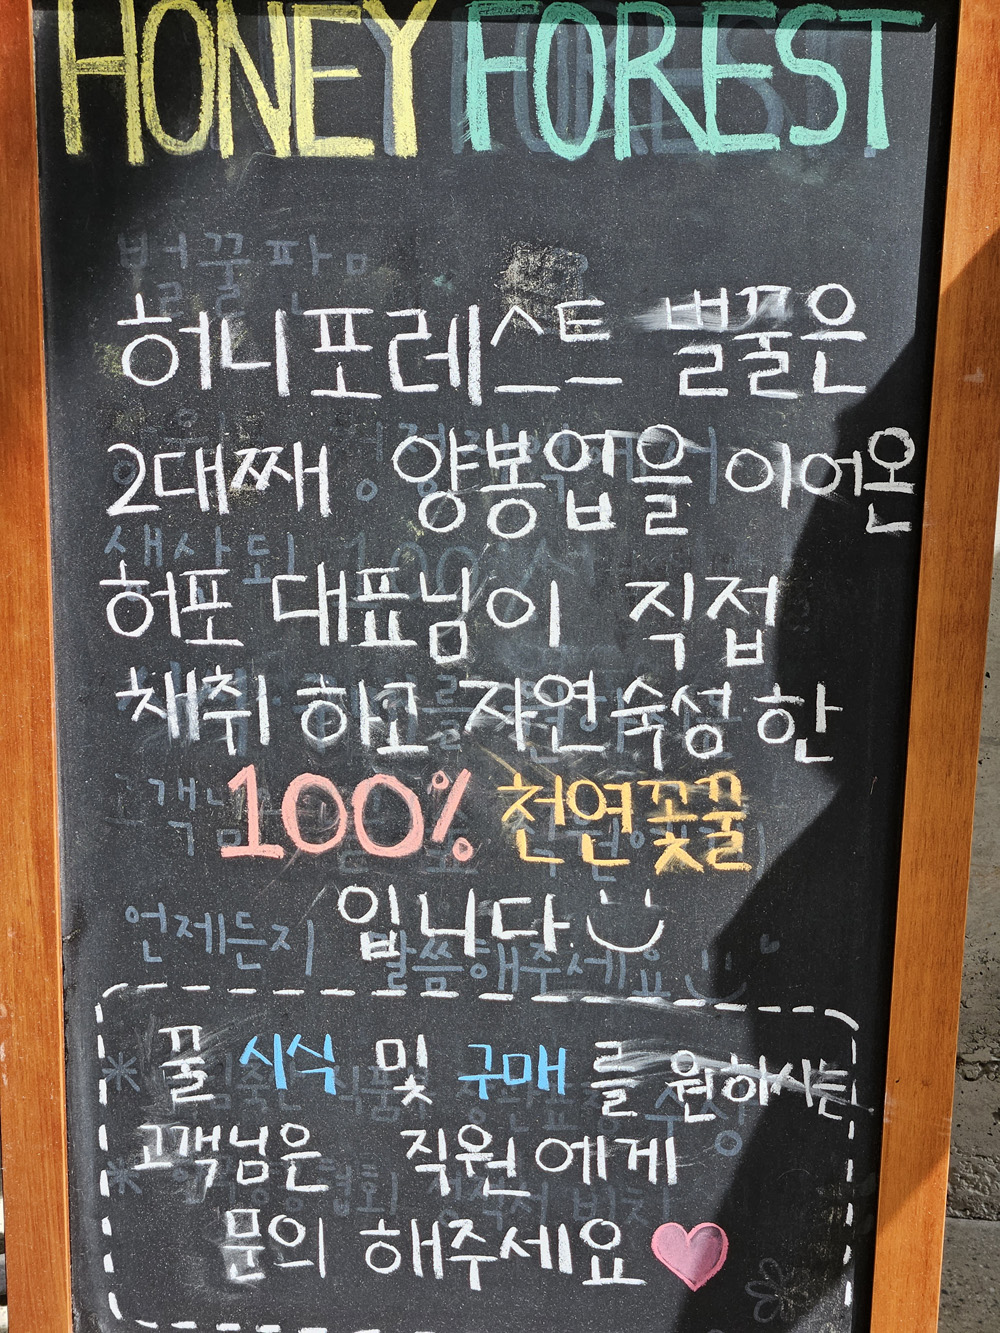 HONEY FOREST
허니포레스트 벌꿀은
2대째 양봉업을 이어온
허포 대표님이 직접
채취 하고 자연숙성 한
100% 천연꽃꿀
입니다.
꿀 시식 및 구매 를 원하시는
고객님은 직원에게
문의 해주세요